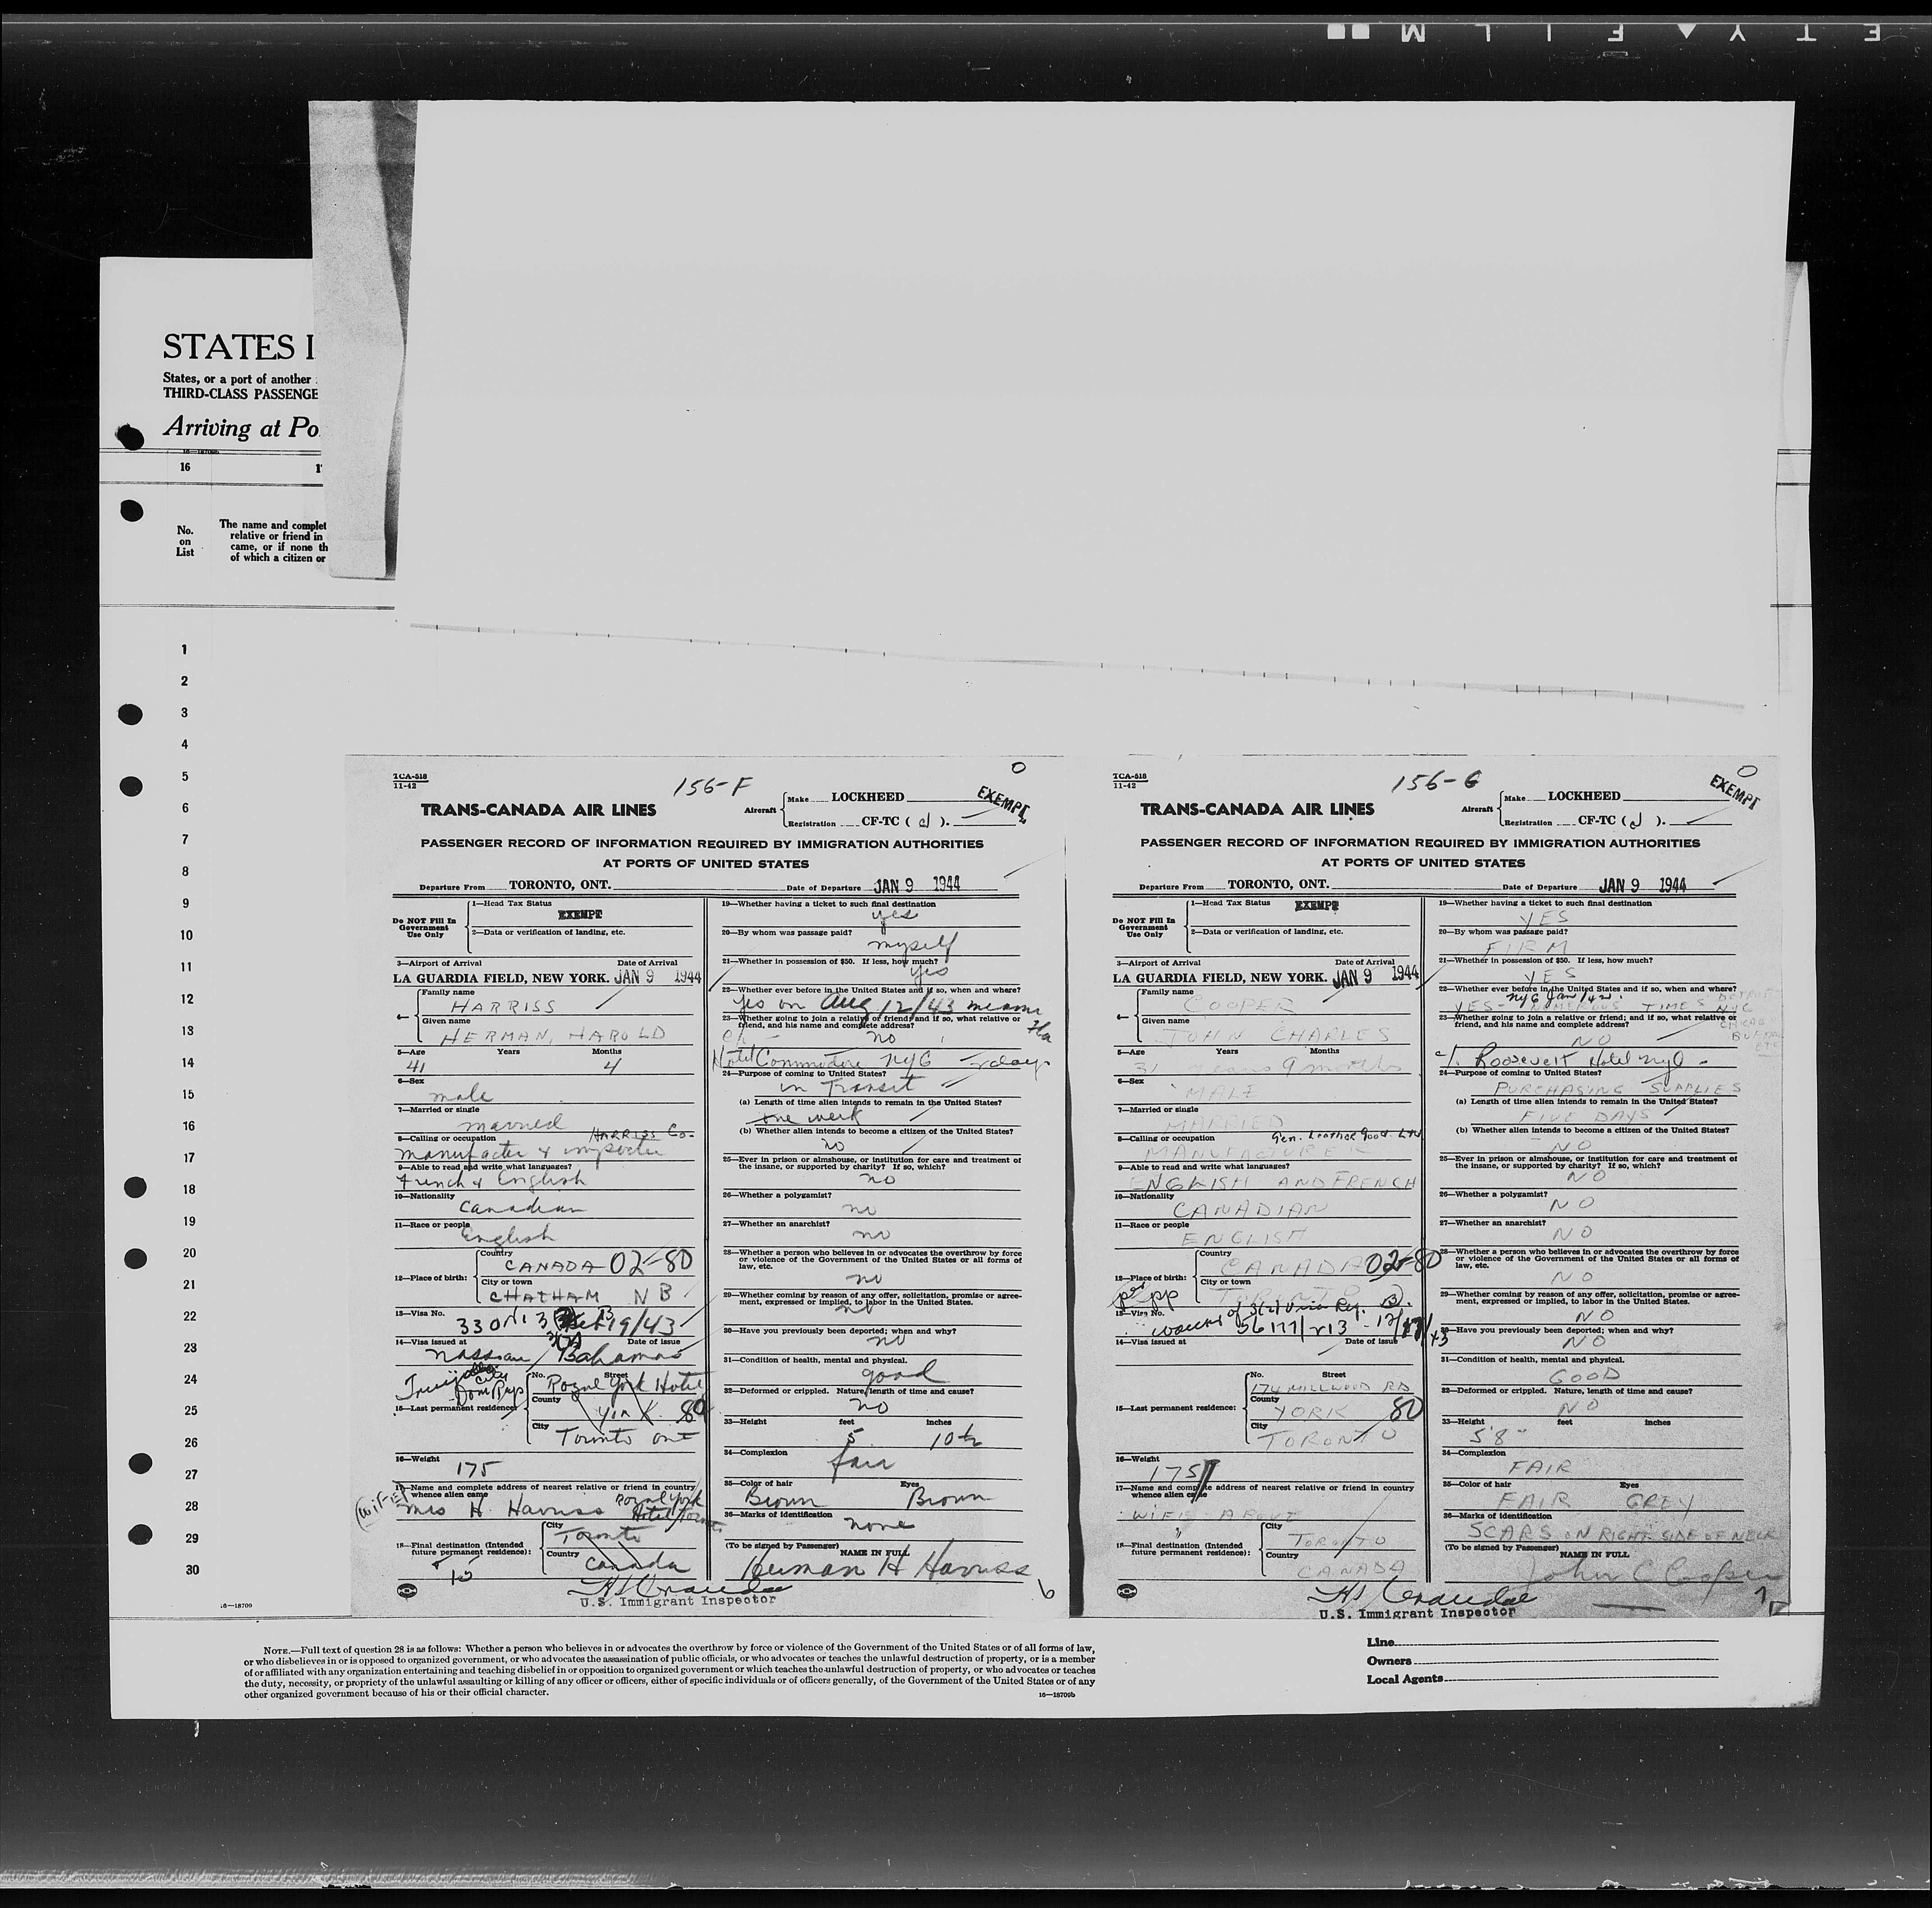 SAFETY FILM
STATES I
States, or a port of another
THIRD-CLASS PASSENGE
Arriving at Po
16
No.
on
List
The name and complet
relative or friend in
came, or if none th
of which a citizen or
1
2
3
4
5
6
7
8
9
10
11
12
13
14
15
16
17
18
19
20
21
22
23
24
25
26
27
28
29
30
16—18709
TCA-518
11-42
156-F
O
TRANS-CANADA AIR LINES
Aircraft
Make LOCKHEED
Registration CF-TC ( d ).
EXEMPT
PASSENGER RECORD OF INFORMATION REQUIRED BY IMMIGRATION AUTHORITIES
AT PORTS OF UNITED STATES
Departure From TORONTO, ONT. Date of Departure JAN 9 1944
Do NOT Fill In
Government
Use Only
1—Head Tax Status
EXEMPT
2—Data or verification of landing, etc.
3—Airport of Arrival Date of Arrival
LA GUARDIA FIELD, NEW YORK. JAN 9 1944
4— Family name
HARRISS
Given name
HERMAN, HAROLD
5—Age Years Months
41 4
6—Sex
male
7—Married or single
married
8—Calling or occupation HARRISS Co.
manufacter & importer
9—Able to read and write what languages?
French & English
10—Nationality
Canadian
11—Race or people
English
12—Place of birth:
Country
CANADA 02-80
City or town
CHATHAM N B
13—Visa No.
19/43
14—Visa issued at Date of issue
Nassau Bahamas
city
Dom Rep
15—Last permanent residence:
No. Street
Royal York Hotel
County
York 80
City
Toronto ont
16—Weight
175
17—Name and complete address of nearest relative or friend in country
whence alien came
(WIFE) Mrs H. Harriss Royal York
Hotel Toronto
18—Final destination (Intended
future permanent residence):
City
Toronto
Country
Canada
U.S. Immigrant Inspector
19—Whether having a ticket to such final destination
yes
20—By whom was passage paid?
myself
21—Whether in possession of $50. If less, how much?
yes
22—Whether ever before in the United States and if so, when and where?
yes on Aug 12/43 miami
Fla
23—Whether going to join a relative or friend; and if so, what relative or
friend, and his name and complete address?
no
Hotel Commodore NYC
24—Purpose of coming to United States?
in Transit
(a) Length of time alien intends to remain in the United States?
one week
(b) Whether alien intends to become a citizen of the United States?
no
25—Ever in prison or almshouse, or institution for care and treatment of
the insane, or supported by charity? If so, which?
no
26—Whether a polygamist?
no
27—Whether an anarchist?
no
28—Whether a person who believes in or advocates the overthrow by force
or violence of the Government of the United States or all forms of
law, etc.
no
29—Whether coming by reason of any offer, solicitation, promise or agree-
ment, expressed or implied, to labor in the United States.
no
30—Have you previously been deported; when and why?
no
31—Condition of health, mental and physical.
good
32—Deformed or crippled. Nature, length of time and cause?
no
33—Height feet inches
5 10 1/2
34—Complexion
fair
35—Color of hair Eyes
Brown Brown
36—Marks of identification
none
(To be signed by Passenger)
NAME IN FULL
Herman H Harriss
6
TCA-518
11-42
156-G
O
TRANS-CANADA AIR LINES
Aircraft
Make LOCKHEED
Registration CF-TC ( d ).
EXEMPT
PASSENGER RECORD OF INFORMATION REQUIRED BY IMMIGRATION AUTHORITIES
AT PORTS OF UNITED STATES
Departure From TORONTO, ONT. Date of Departure JAN 9 1944
Do NOT Fill In
Government
Use Only
1—Head Tax Status
EXEMPT
2—Data or verification of landing, etc.
3—Airport of Arrival Date of Arrival
LA GUARDIA FIELD, NEW YORK. JAN 9 1944
4— Family name
COOPER
Given name
JOHN CHARLES
5—Age Years Months
31 years 9 months
6—Sex
MALE
7—Married or single
MARRIED
8—Calling or occupation Gen. Leather Good. Ltd
MANUFACTURER
9—Able to read and write what languages?
ENGLISH AND FRENCH
10—Nationality
CANADIAN
11—Race or people
ENGLISH
12—Place of birth:
Country
CANADA 02-80
City or town
TORONTO
13—Visa No.
14—Visa issued at Date of issue
15—Last permanent residence:
No. Street
174 MILLWOOD RD
County
YORK 80
City
TORONTO
16—Weight
175
17—Name and complete address of nearest relative or friend in country
whence alien came
WIFE ABOVE
18—Final destination (Intended
future permanent residence):
City
TORONTO
Country
CANADA
U.S. Immigrant Inspector
19—Whether having a ticket to such final destination
YES
20—By whom was passage paid?
FIRM
21—Whether in possession of $50. If less, how much?
YES
22—Whether ever before in the United States and if so, when and where?
YES - NUMEROUS TIMES DETROIT
NYC
23—Whether going to join a relative or friend; and if so, what relative or
friend, and his name and complete address?
NO
c/o Roosevelt Hotel NYC
24—Purpose of coming to United States?
PURCHASING SUPPLIES
(a) Length of time alien intends to remain in the United States?
FIVE DAYS
(b) Whether alien intends to become a citizen of the United States?
NO
25—Ever in prison or almshouse, or institution for care and treatment of
the insane, or supported by charity? If so, which?
NO
26—Whether a polygamist?
NO
27—Whether an anarchist?
NO
28—Whether a person who believes in or advocates the overthrow by force
or violence of the Government of the United States or all forms of
law, etc.
NO
29—Whether coming by reason of any offer, solicitation, promise or agree-
ment, expressed or implied, to labor in the United States.
NO
30—Have you previously been deported; when and why?
NO
31—Condition of health, mental and physical.
GOOD
32—Deformed or crippled. Nature, length of time and cause?
NO
33—Height feet inches
5'8"
34—Complexion
FAIR
35—Color of hair Eyes
FAIR GREY
36—Marks of identification
SCARS ON RIGHT SIDE OF NECK
(To be signed by Passenger)
NAME IN FULL
John C Cooper
7
NOTE.—Full text of question 28 is as follows: Whether a person who believes in or advocates the overthrow by force or violence of the Government of the United States or of all forms of law,
or who disbelieves in or is opposed to organized government, or who advocates the assassination of public officials, or who advocates or teaches the unlawful destruction of property, or is a member
of or affiliated with any organization entertaining and teaching disbelief in or opposition to organized government or which teaches the unlawful destruction of property, or who advocates or teaches
the duty, necessity, or propriety of the unlawful assaulting or killing of any officer or officers, either of specific individuals or of officers generally, of the Government of the United States or of any
other organized government because of his or their official character.
16—18709b
Line
Owners
Local Agents